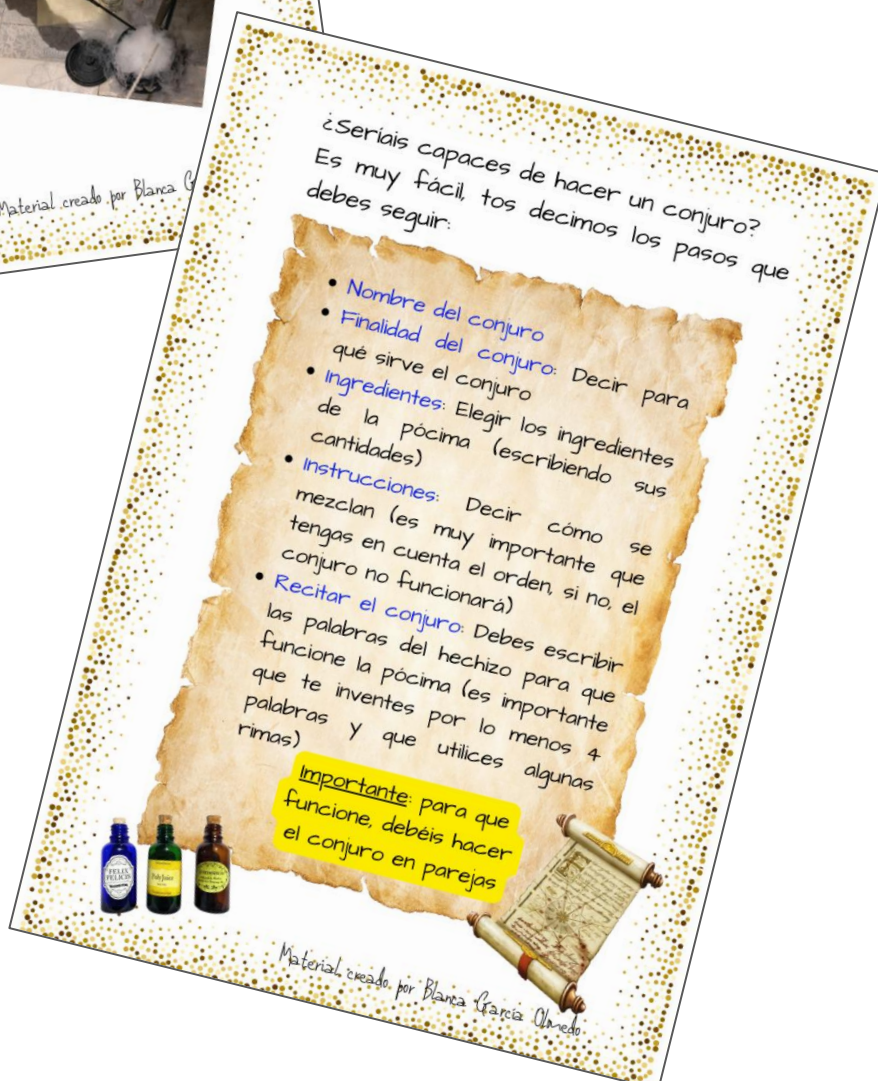 Material creado por Blanca G
¿Seríais capaces de hacer un conjuro?
Es muy fácil, tos decimos los pasos que
debes seguir:
• Nombre del conjuro
• Finalidad del conjuro: Decir para
qué sirve el conjuro
• Ingredientes: Elegir los ingredientes
de la pócima (escribiendo sus
cantidades)
• Instrucciones: Decir cómo se
mezclan (es muy importante que
tengas en cuenta el orden, si no, el
conjuro no funcionará)
• Recitar el conjuro: Debes escribir
las palabras del hechizo para que
funcione la pócima (es importante
que te inventes por lo menos 4
palabras y que utilices algunas
rimas)
Importante: para que
funcione, debéis hacer
el conjuro en parejas
FELIX
FELICIS
PolyJuice
Material creado por Blanca García Olmedo